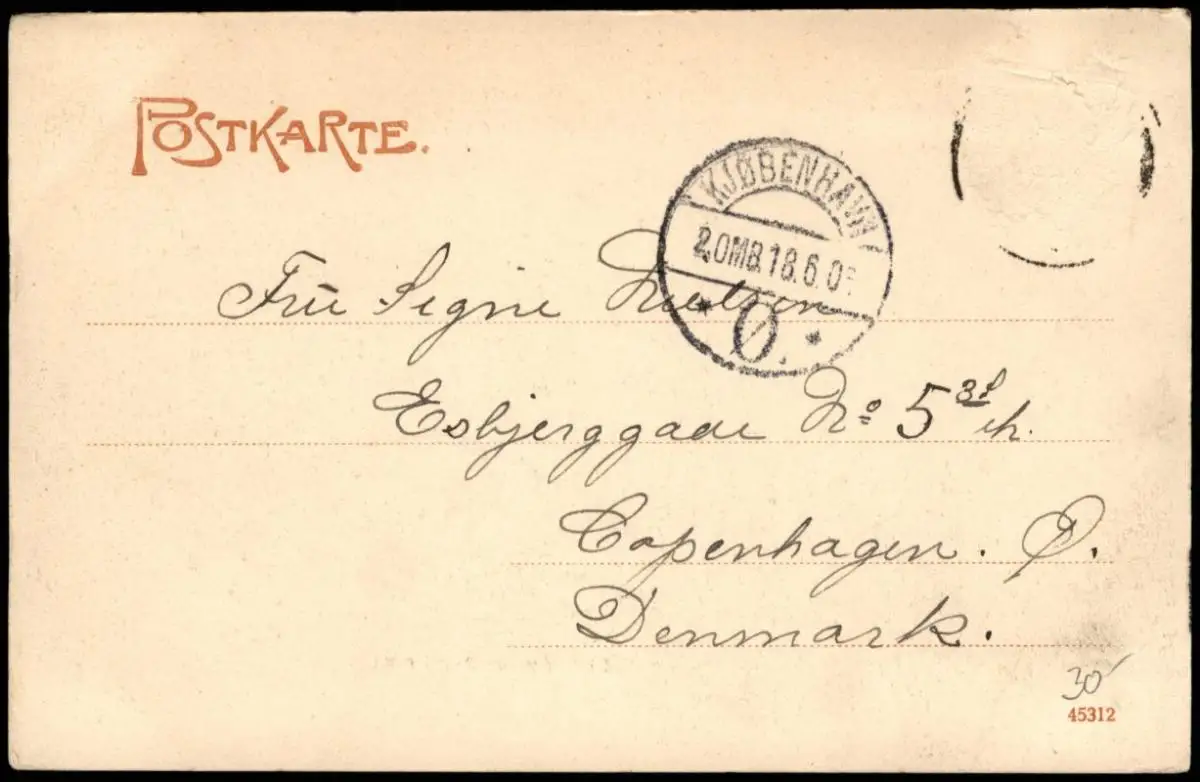 POSTKARTE.
KJØBENHAVN
2.OMB. 18.6.0
* Ø. *
Frú Signe Nielsen
Esbjerggade No 5 3d th.
Copenhagen. Ø.
Denmark.
30
45312